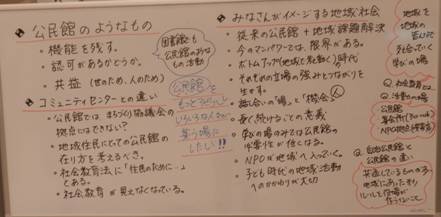 公民館のようなもの
・機能を残す。
・認可があるかどうか。
・共益（世のため、人のため）
図書館も
公民館的な
もの 活動
コミュニティセンターとの違い
・公民館では まちづくり協議会の
拠点にはできない？
・地域住民にとっての公民館の
在り方を考えるべき。
・社会教育法に「住民のために…」
とある。
・社会教育 が見えなくなっている。
公民館を
もっと
いろいろな人が
集う場に
したい!!
みなさんがイメージする地域社会
・従来の公民館＋地域課題解決
・今のマンパワーでは、限界がある。
・ボトムアップ（地域で見動く）時代
・それぞれの立場の強みとつながりを
生す。
・話し合いの「場」と「機会」人
・長く続けることの意義
・学びの場のみでは公民館の
必要性が低くなる。
・NPOが地域へ入っていく。
・子ども時代の地域活動
へのかかわりが大切
地域を
地域の
学びの場
Q. 社会教育とは
公民館
NPO
Q. 自治公民館と
公民館の違い
共通しているものの
地域にあったきまり
ルールを住民が
作りこなして